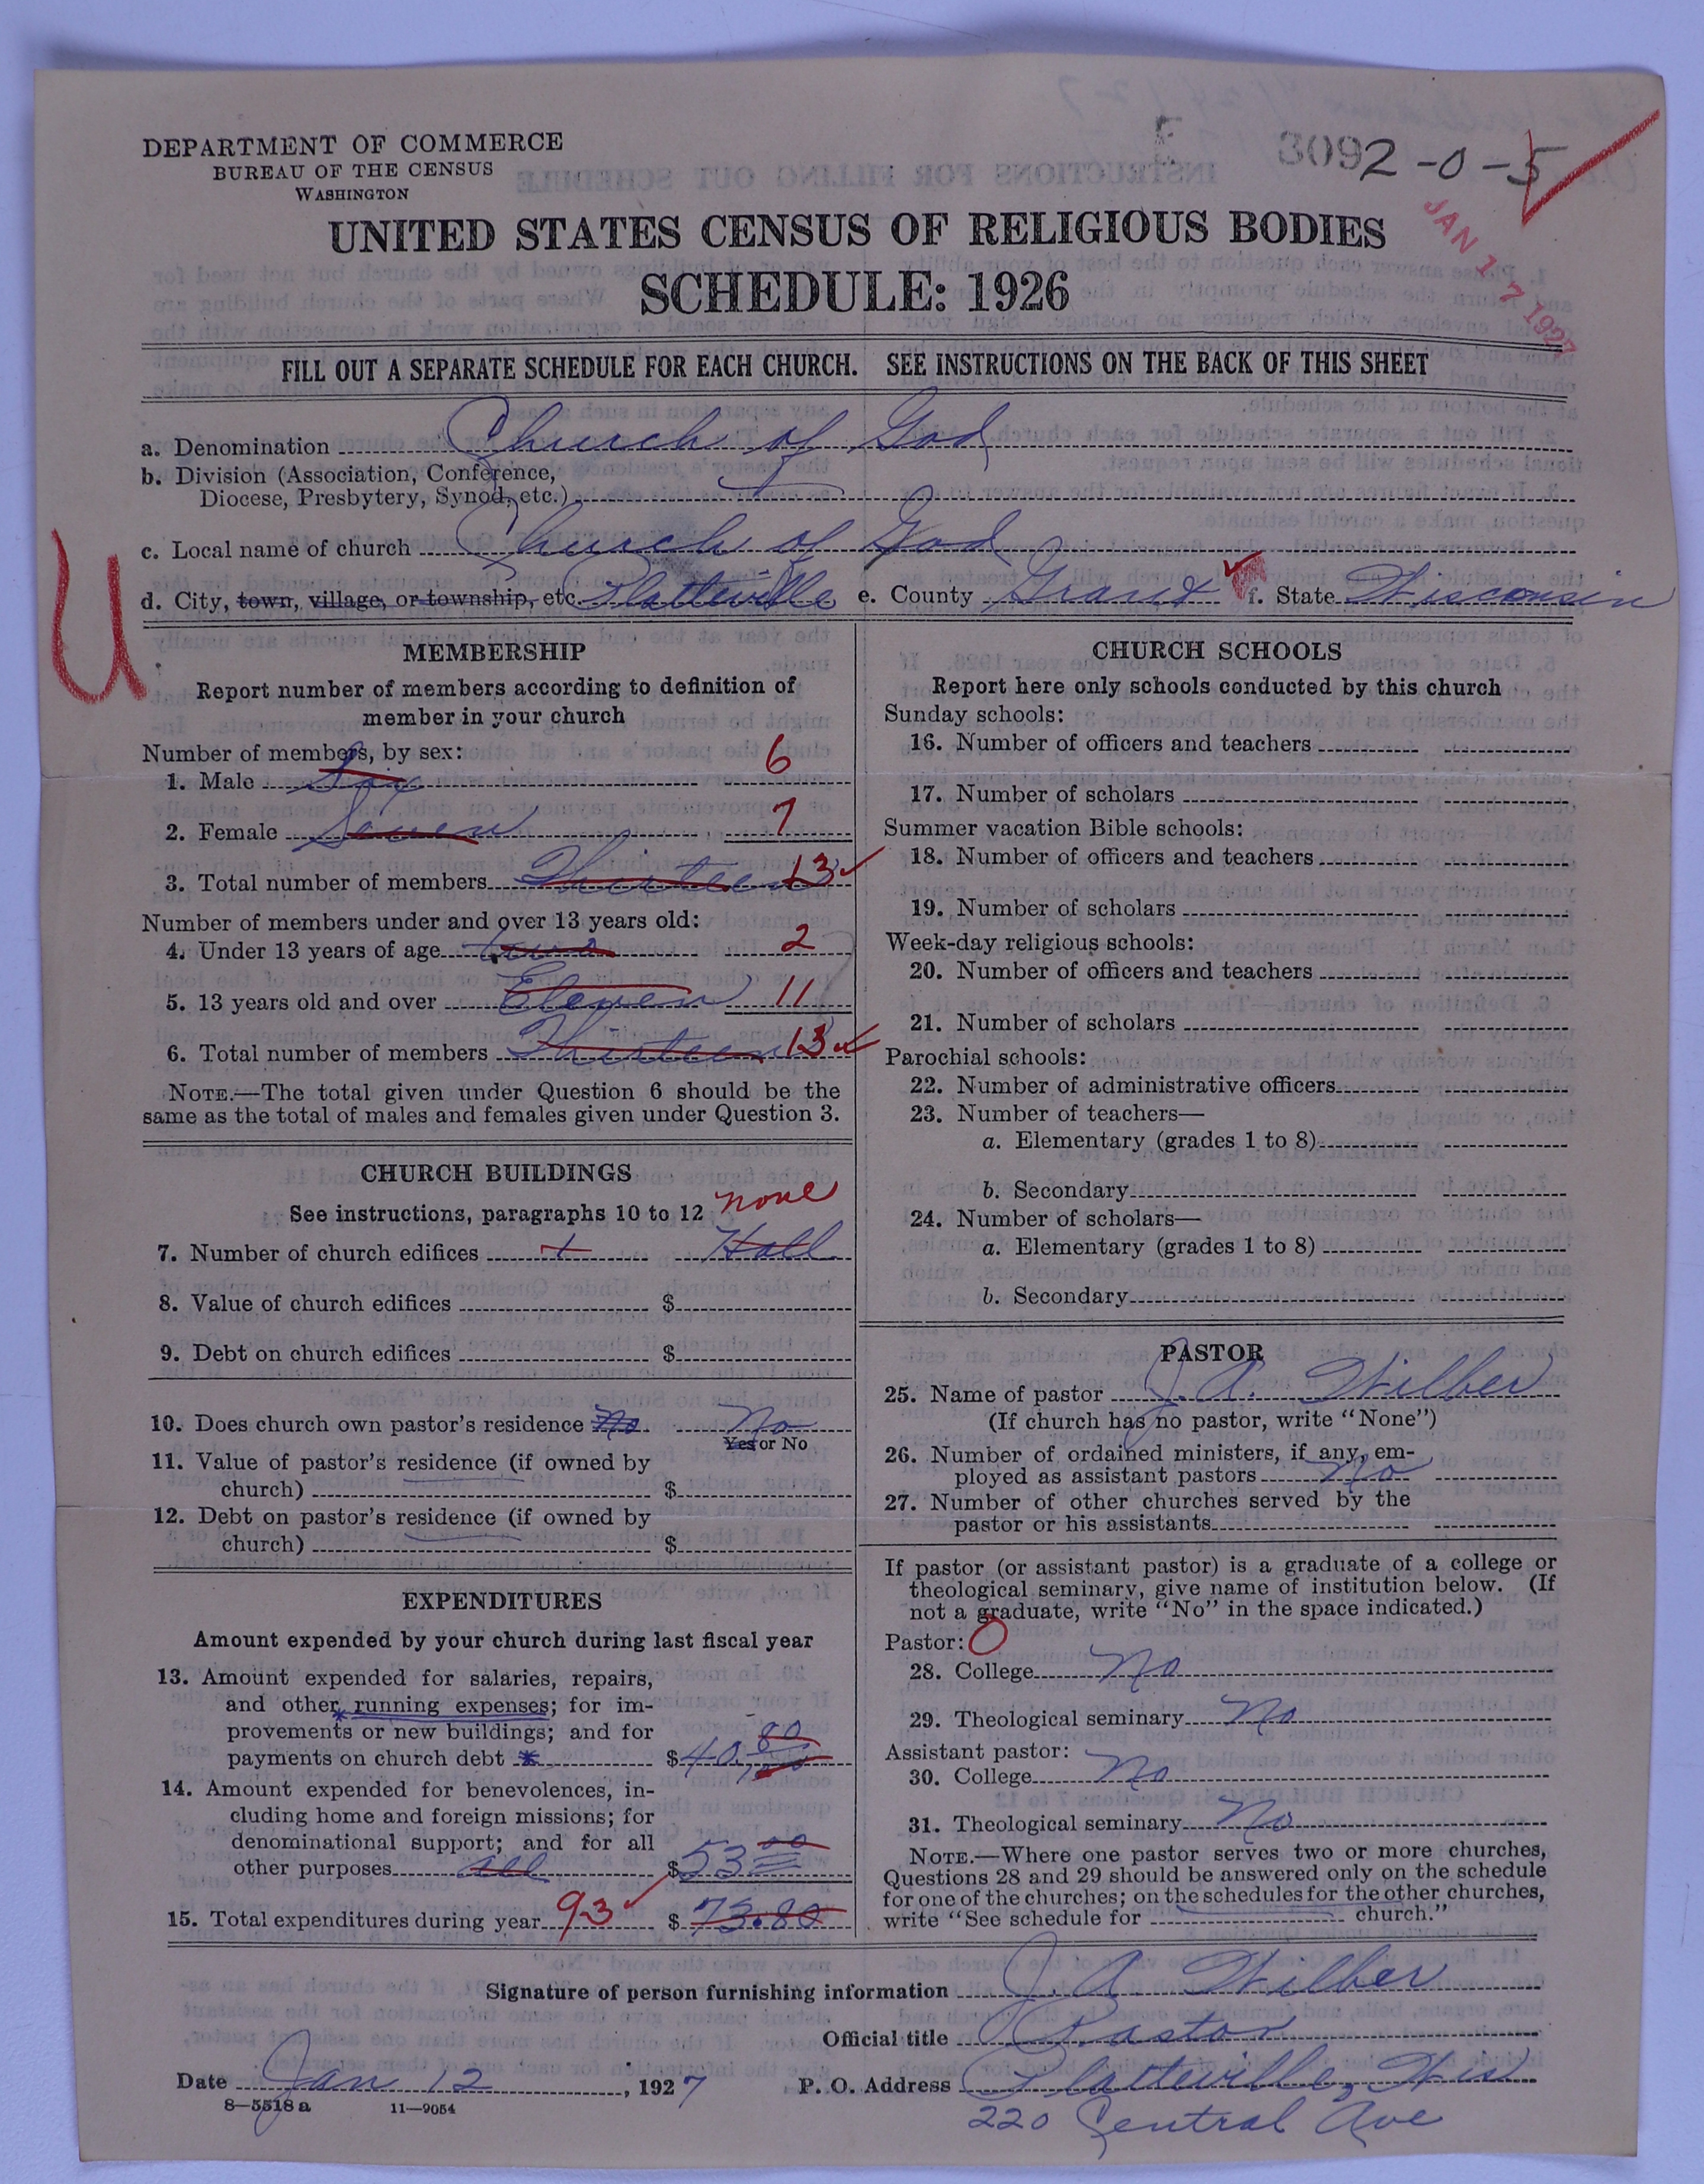 DEPARTMENT OF COMMERCE
BUREAU OF THE CENSUS
WASHINGTON
3092-0-5
JAN 17 1927
UNITED STATES CENSUS OF RELIGIOUS BODIES
SCHEDULE: 1926
FILL OUT A SEPARATE SCHEDULE FOR EACH CHURCH. SEE INSTRUCTIONS ON THE BACK OF THIS SHEET
a. Denomination Church of God
b. Division (Association, Conference,
Diocese, Presbytery, Synod, etc.)
c. Local name of church Church of God
d. City, town, village, or township, etc. Platteville e. County Grant f. State Wisconsin
U
MEMBERSHIP
Report number of members according to definition of
member in your church
Number of members, by sex:
1. Male Six 6
2. Female Seven 7
3. Total number of members Thirteen 13
Number of members under and over 13 years old:
4. Under 13 years of age two 2
5. 13 years old and over Eleven 11
6. Total number of members Thirteen 13
NOTE.—The total given under Question 6 should be the
same as the total of males and females given under Question 3.
CHURCH BUILDINGS
See instructions, paragraphs 10 to 12 none
7. Number of church edifices 1 Hall
8. Value of church edifices $
9. Debt on church edifices $
10. Does church own pastor's residence No No
Yes or No
11. Value of pastor's residence (if owned by
church) $
12. Debt on pastor's residence (if owned by
church) $
EXPENDITURES
Amount expended by your church during last fiscal year
13. Amount expended for salaries, repairs,
and other running expenses; for im-
provements or new buildings; and for
payments on church debt * $40.80
14. Amount expended for benevolences, in-
cluding home and foreign missions; for
denominational support; and for all
other purposes all $53 00
15. Total expenditures during year 93 $ 73.80
CHURCH SCHOOLS
Report here only schools conducted by this church
Sunday schools:
16. Number of officers and teachers
17. Number of scholars
Summer vacation Bible schools:
18. Number of officers and teachers
19. Number of scholars
Week-day religious schools:
20. Number of officers and teachers
21. Number of scholars
Parochial schools:
22. Number of administrative officers
23. Number of teachers—
a. Elementary (grades 1 to 8)
b. Secondary
24. Number of scholars—
a. Elementary (grades 1 to 8)
b. Secondary
PASTOR
25. Name of pastor J. A. Wilber
(If church has no pastor, write "None")
26. Number of ordained ministers, if any, em-
ployed as assistant pastors No
27. Number of other churches served by the
pastor or his assistants
If pastor (or assistant pastor) is a graduate of a college or
theological seminary, give name of institution below. (If
not a graduate, write "No" in the space indicated.)
Pastor: O
28. College No
29. Theological seminary No
Assistant pastor:
30. College No
31. Theological seminary No
NOTE.—Where one pastor serves two or more churches,
Questions 28 and 29 should be answered only on the schedule
for one of the churches; on the schedules for the other churches,
write "See schedule for church."
Signature of person furnishing information J. A. Wilber
Official title Pastor
Date Jan 12, 1927 P. O. Address Platteville, Wis
8—5518 a 11—9054
220 Central Ave